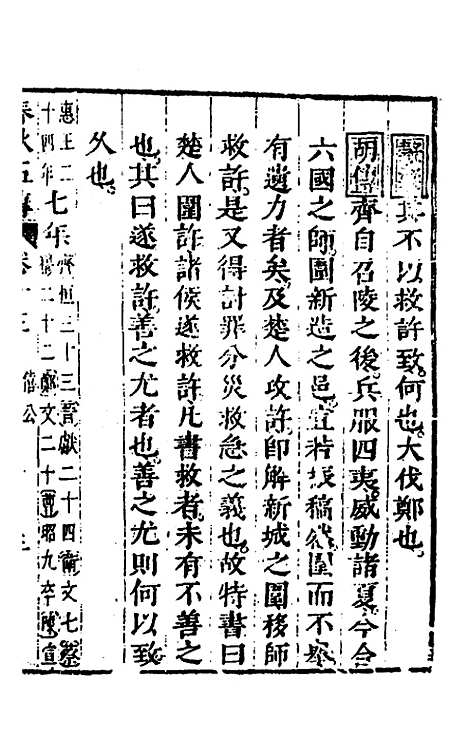 其不以救許致何也大伐鄭也
胡傳齊自召陵之後兵服四夷威動諸夏今合
六國之師圍新造之邑宜若振槁然圍而不舉
有遺力者矣及楚人攻許即解新城之圍移師
救許是又得討罪分災救急之義也故特書曰
楚人圍許諸侯遂救許凡書救者未有不善之
也其曰遂救許善之尤者也善之尤則何以致
久也
惠王二十四年七年齊桓三十三晉獻二十四衛文七蔡
二十二鄭文二十曹昭九卒陳宣
春秋五傳 僖公